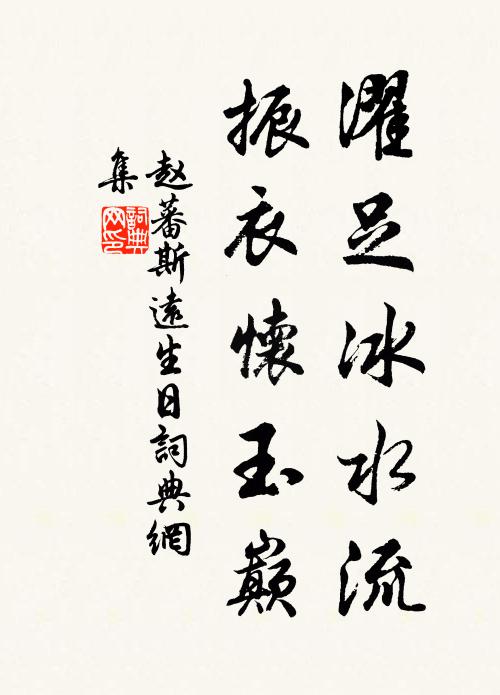 濯足冰水流
振衣懷玉巔
赵蕃斯遠生日詞典網
集
詞典網印